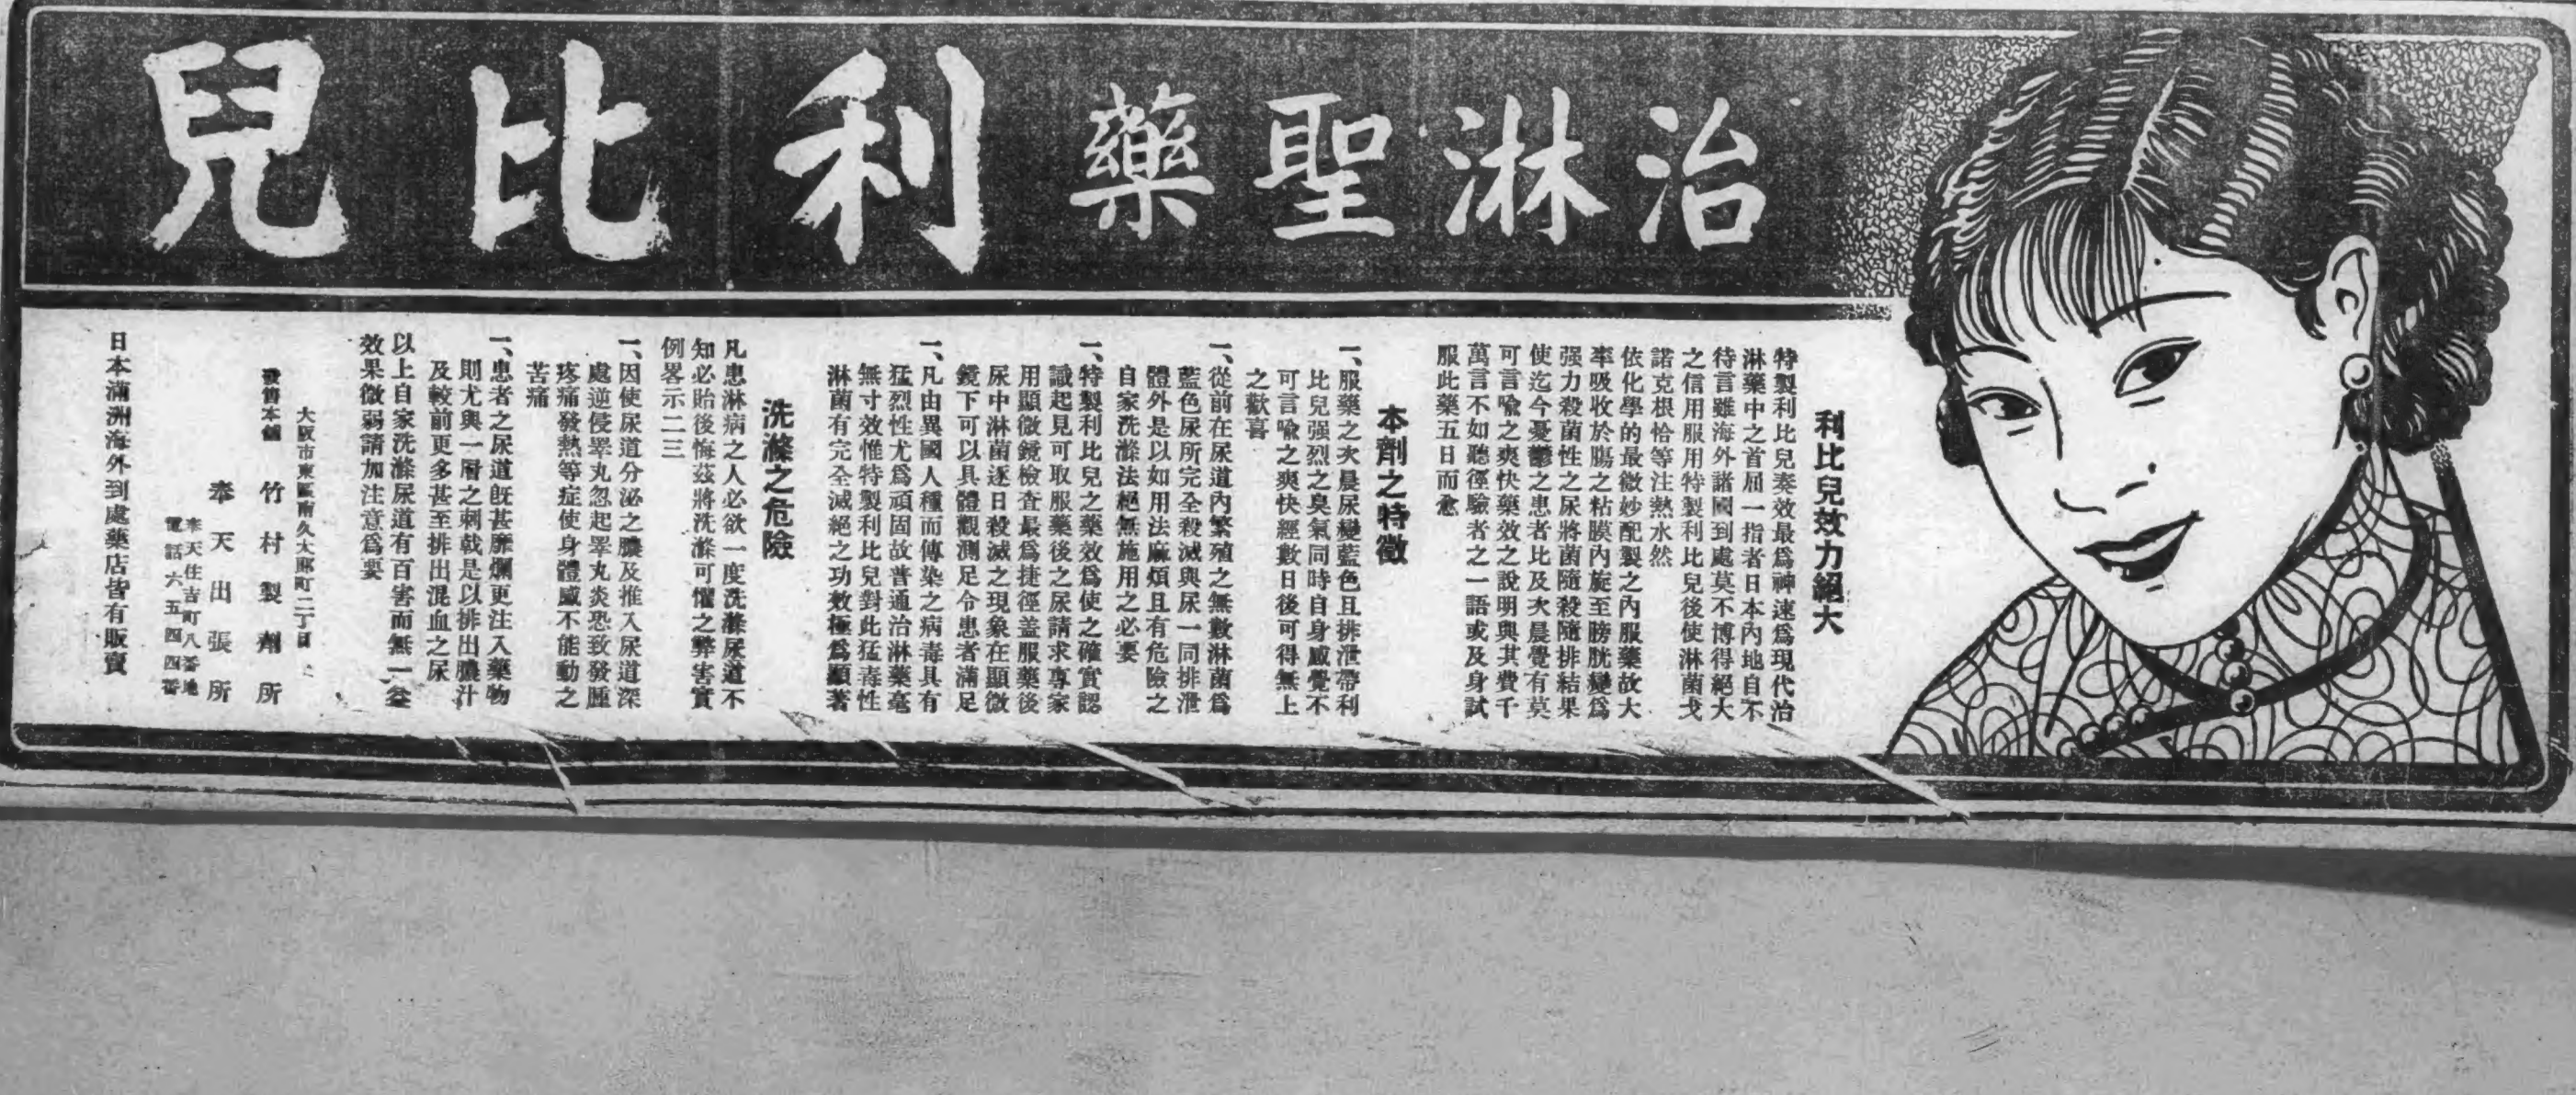 治淋聖藥 利比兒
利比兒效力絕大
特製利比兒奏效最爲神速爲現代治
淋藥中之首屈一指者日本內地自不
待言雖海外諸國到處莫不博得絕大
之信用服用特製利比兒後使淋菌戈
諾克根恰等注熱水然
依化學的最微妙配製之內服藥故大
率吸收於腸之粘膜內旋至膀胱變爲
强力殺菌性之尿將菌隨殺隨排結果
使迄今憂鬱之患者比及次晨覺有莫
可言喩之爽快藥效之說明與其費千
萬言不如聽徑驗者之一語或及身試
服此藥五日而愈
本劑之特徵
一、服藥之次晨尿變藍色且排泄帶利
比兒强烈之臭氣同時自身感覺不
可言喩之爽快經數日後可得無上
之歡喜
一、從前在尿道內繁殖之無數淋菌爲
藍色尿所完全殺滅與尿一同排泄
體外是以如用法麻煩且有危險之
自家洗滌法絕無施用之必要
一、特製利比兒之藥效爲使之確實認
識起見可取服藥後之尿請求專家
用顯微鏡檢查最爲捷徑盖服藥後
尿中淋菌逐日殺滅之現象在顯微
鏡下可以具體觀測足令患者滿足
一、凡由異國人種而傳染之病毒具有
猛烈性尤爲頑固故普通治淋藥毫
無寸效惟特製利比兒對此猛毒性
淋菌有完全滅絕之功效極爲顯著
洗滌之危險
凡患淋病之人必欲一度洗滌尿道不
知必貽後悔茲將洗滌可懼之弊害實
例畧示二三
一、因使尿道分泌之膿及推入尿道深
處逆侵睪丸忽起睪丸炎恐致發腫
疼痛發熱等症使身體感不能動之
苦痛
一、患者之尿道旣甚靡爛更注入藥物
則尤與一層之刺戟是以排出膿汁
及較前更多甚至排出混血之尿
以上自家洗滌尿道有百害而無一益
效果微弱請加注意爲要
大阪市東區南久太郎町二丁目
發售本舖 竹村製劑所
奉天出張所
奉天住吉町八番地
電話六五四四番
日本滿洲海外到處藥店皆有販賣